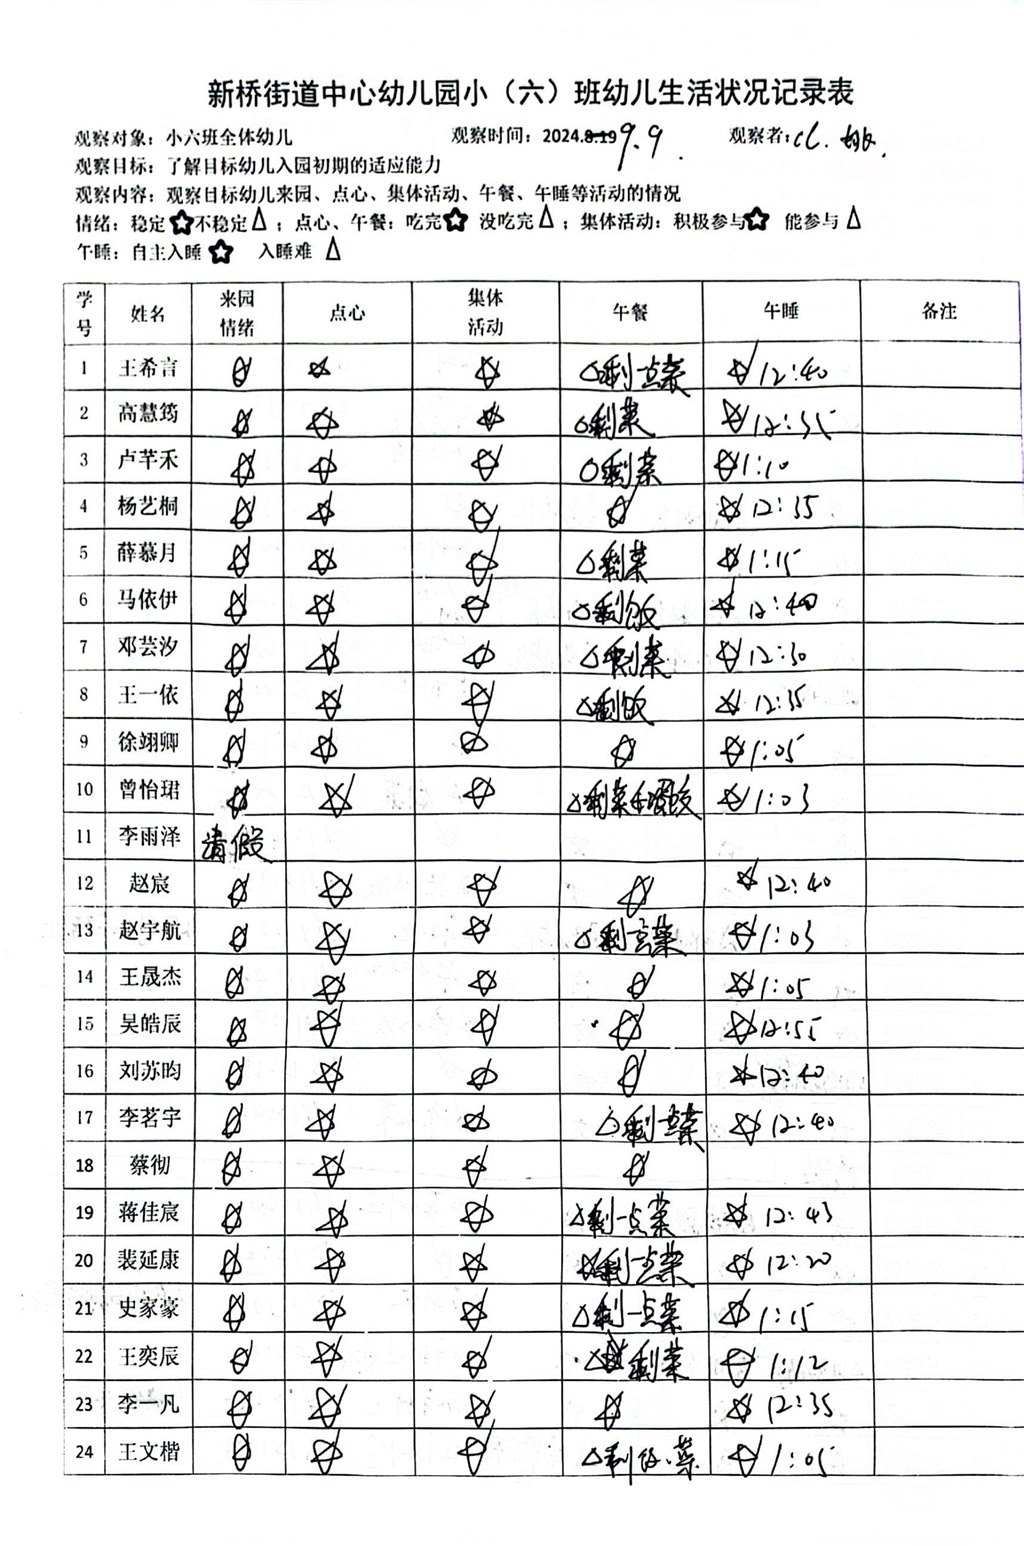 新桥街道中心幼儿园小（六）班幼儿生活状况记录表
观察对象：小六班全体幼儿 观察时间：2024.8.19 9.9. 观察者：
观察目标：了解目标幼儿入园初期的适应能力
观察内容：观察目标幼儿来园、点心、集体活动、午餐、午睡等活动的情况
情绪：稳定☆不稳定△；点心、午餐：吃完☆ 没吃完△；集体活动：积极参与☆ 能参与△
午睡：自主入睡☆ 入睡难 △
学号 姓名 来园情绪 点心 集体活动 午餐 午睡 备注
1 王希言 ☆ ☆ ☆ △剩一点菜 ☆12:40
2 高慧筠 ☆ ☆ ☆ △剩菜 ☆12:35
3 卢芊禾 ☆ ☆ ☆ △剩菜 ☆1:10
4 杨艺桐 ☆ ☆ ☆ ☆ ☆12:35
5 薛慕月 ☆ ☆ ☆ △剩菜 ☆1:15
6 马依伊 ☆ ☆ ☆ △剩饭 ☆12:40
7 邓芸汐 ☆ ☆ ☆ △剩菜 ☆12:30
8 王一依 ☆ ☆ ☆ △剩饭 ☆12:35
9 徐翊卿 ☆ ☆ ☆ ☆ ☆1:05
10 曾怡珺 ☆ ☆ ☆ △剩菜 ☆1:03
11 李雨泽 请假
12 赵宸 ☆ ☆ ☆ ☆ ☆12:40
13 赵宇航 ☆ ☆ ☆ △剩一点菜 ☆1:03
14 王晟杰 ☆ ☆ ☆ ☆ ☆1:05
15 吴皓辰 ☆ ☆ ☆ ☆ ☆12:55
16 刘苏昀 ☆ ☆ ☆ ☆ ☆12:40
17 李茗宇 ☆ ☆ ☆ △剩一点菜 ☆12:40
18 蔡彻 ☆ ☆ ☆ ☆
19 蒋佳宸 ☆ ☆ ☆ △剩一点菜 ☆12:43
20 裴延康 ☆ ☆ ☆ 剩一点菜 ☆12:20
21 史家豪 ☆ ☆ ☆ △剩一点菜 ☆1:15
22 王奕辰 ☆ ☆ ☆ △剩菜 ☆1:12
23 李一凡 ☆ ☆ ☆ ☆ ☆12:35
24 王文楷 ☆ ☆ ☆ △剩饭、菜 ☆1:05